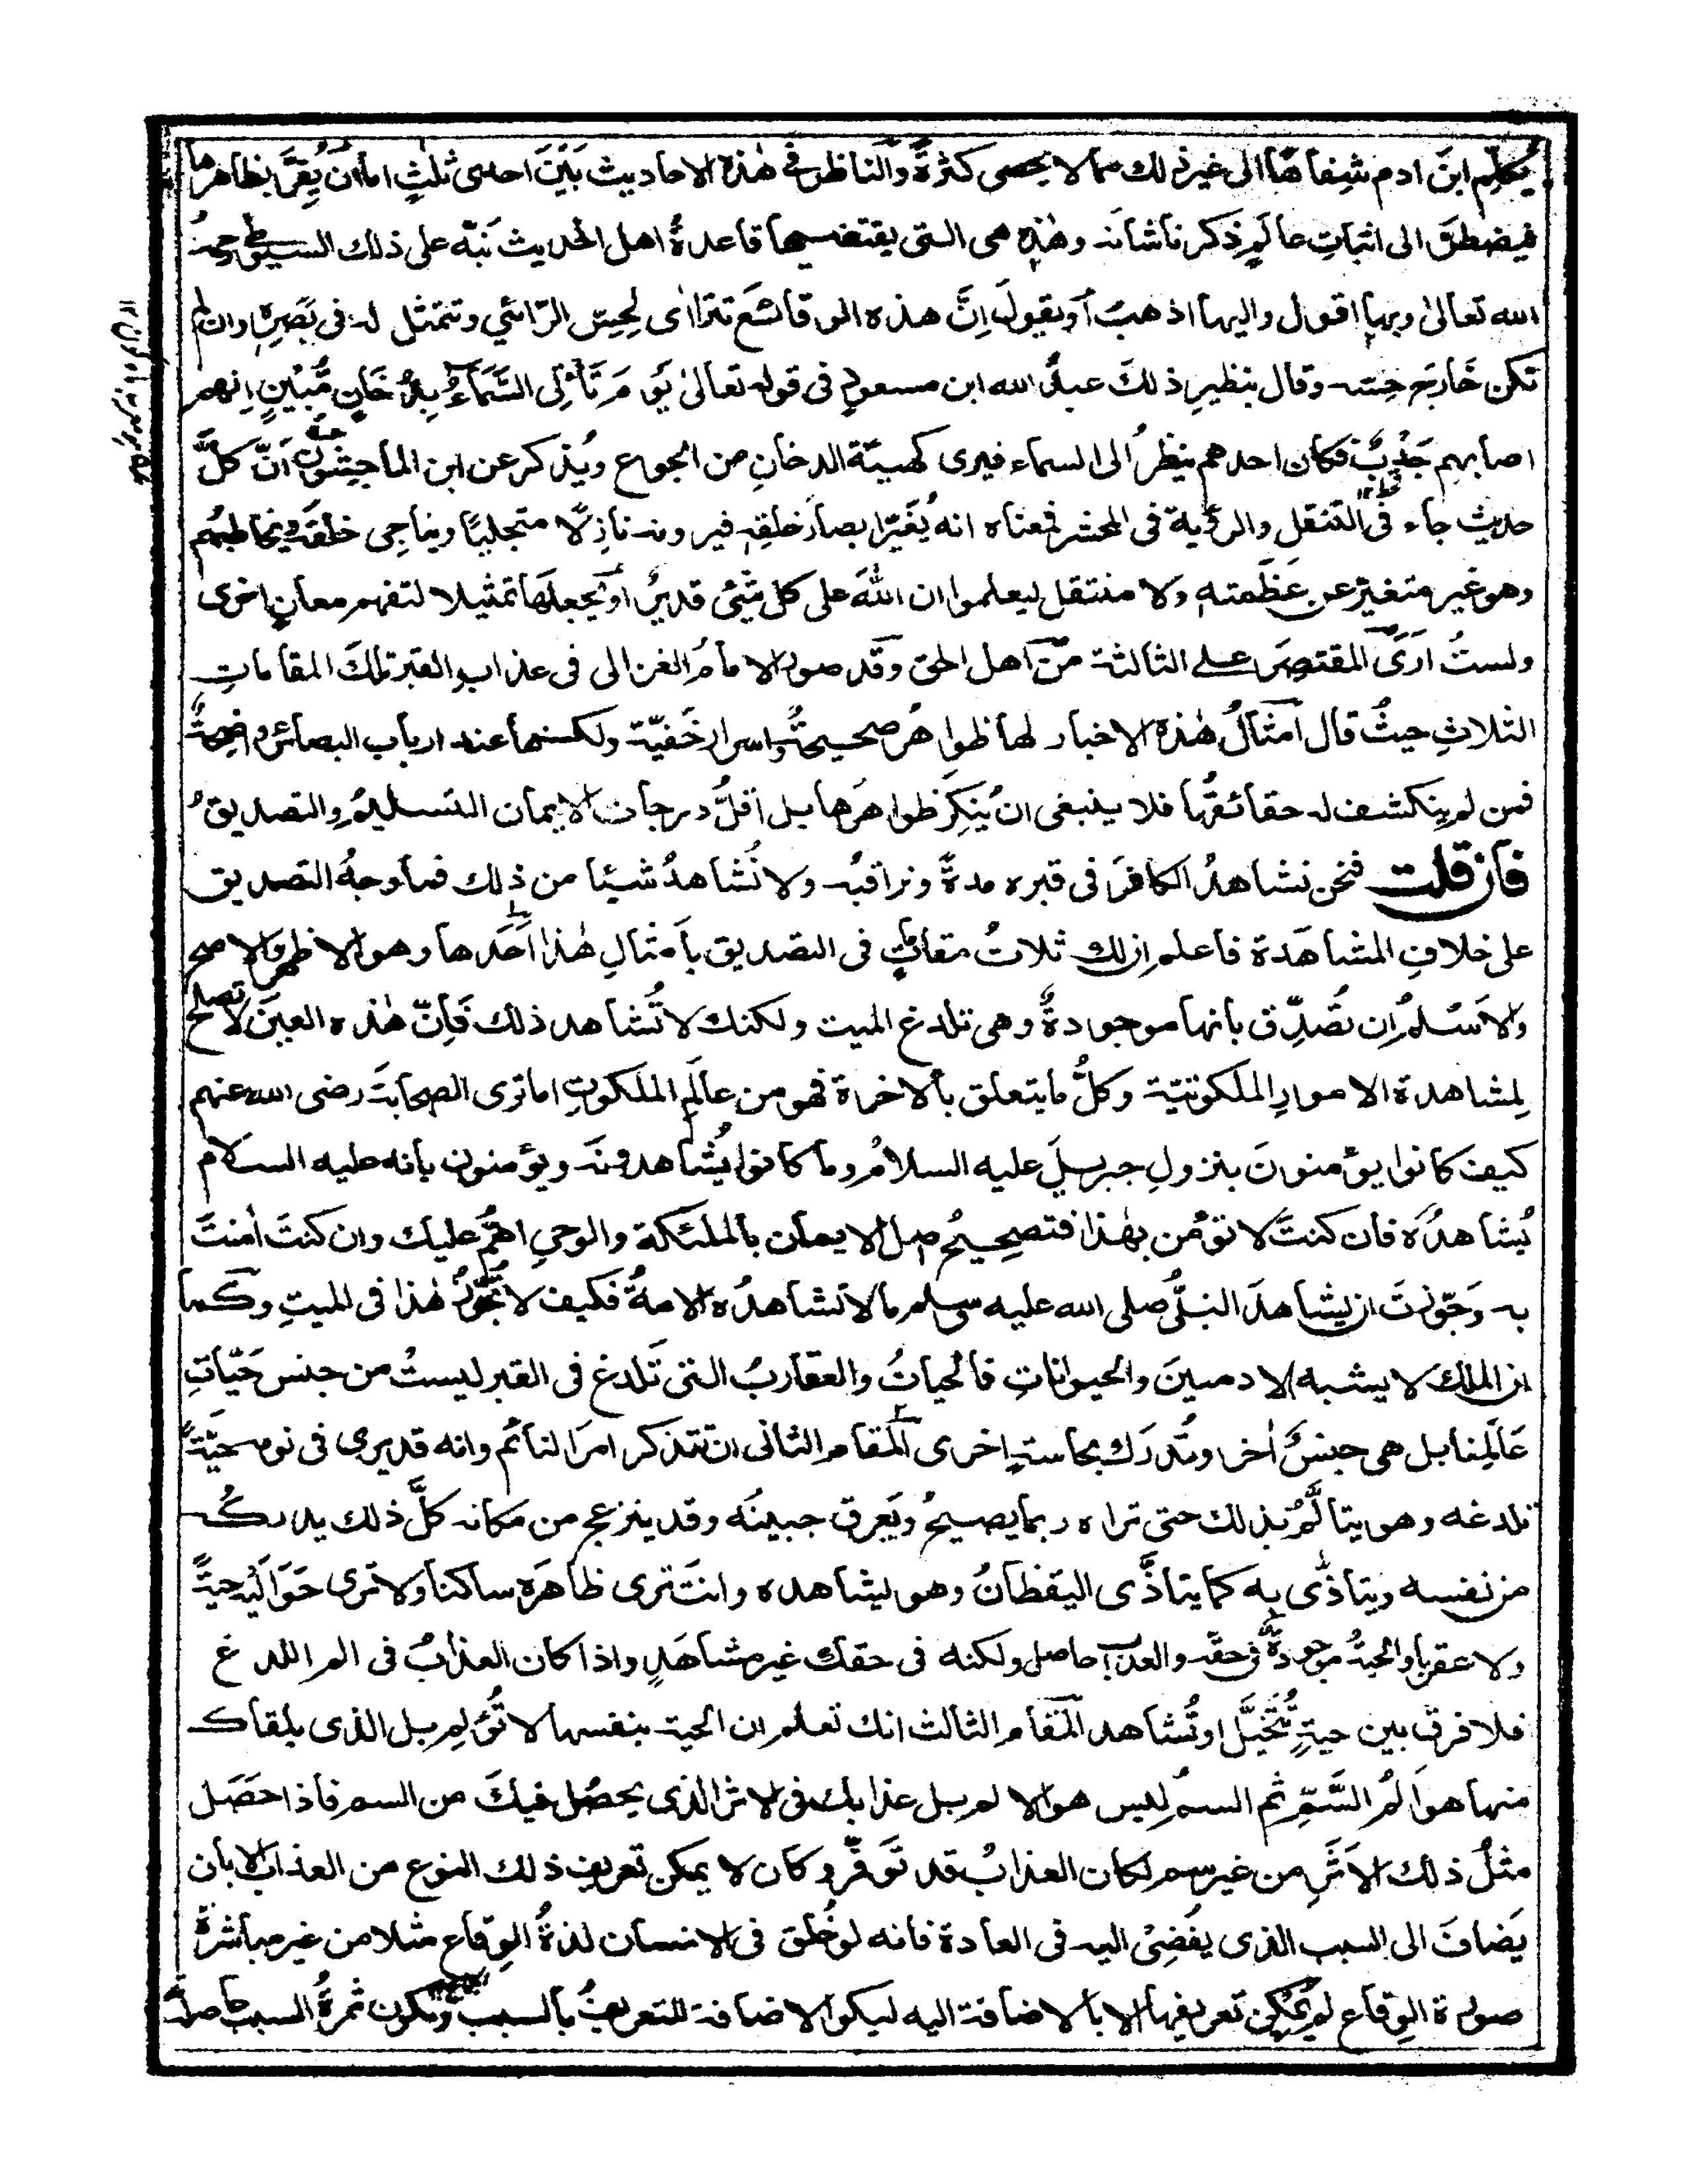 يُكلِّم ابنَ ادم شِفاهًا الى غير ذلك مما لا يحصى كثرةً والناظر فى هٰذه الاحاديث بَيْنَ احدى ثلٰثٍ اما ان يُقِرَّ بظاهرها
فيضطرّ الى اثباتِ عالَمٍ ذكرنا شانه وهٰذه هى التى يقتضيها قاعدةُ اهل الحديث نَبّه على ذلك السيوطى رحمهُ
الله تعالىٰ وبها اقول واليها اذهبُ أو يقولَ اِنَّ هذه الوقائعَ تتراأى لِحِسّ الرّائي وتتمثل له فى بَصَرِه وان لم
تكن خَارجَ حِسّه وقال بنظيرِ ذلكَ عبدُ الله ابن مسعودٍ فى قوله تعالىٰ يَوْمَ تَأْتِى السَّمَآءُ بِدُخَانٍ مُّبِيْنٍ اِنهم
اصابهم جَدْبٌ فكان احدهم ينظرُ الى السماء فيرى كهيئة الدخانِ من الجوع ويُذكر عن ابن الماجِشُون اَنّ كلَّ
حديث جاء فى التنقل والرؤية فى المحشر فمعناه انه يُغَيّر ابصارَ خلقِه فيرونه نازِلًا متجليًا ويناجِى خلقَه ويخاطبهم
وهو غير متغيرٍ عن عَظَمته ولا منتقل ليعلموا ان اللّٰهَ على كل شئ قديرٌ او يجعلَها تمثيلا لتفهم معانٍ اخرى
ولستُ اَرَى المقتصِرَ على الثالثة من اهل الحق وقد صور الامامُ الغزالى فى عذاب القبر تلكَ المقاماتِ
الثلاثِ حيثُ قال امثالُ هٰذه الاخبار لها ظواهرُ صحيحةٌ واسرارٌ خَفيّة ولكنها عند ارباب البصائر واضحةٌ
فمن لم ينكشف له حقائقُها فلا ينبغى ان يُنكِرَ ظواهرَها بل اقلُّ درجات الايمان التسليمُ والتصديقُ
فان قلت فنحن نشاهدُ الكافرَ فى قبره مدةً ونراقبُه ولا نُشاهدُ شيئا من ذلك فما وجهُ التصديق
على خلافِ المشاهَدة فاعلم ان لك ثلاثُ مقاماتٍ فى التصديق بأمثالِ هٰذا اَحَدها وهو الاظهر والاصح
والاَسْلمُ ان تُصَدِّق بانها موجودةٌ وهى تلدغ الميت ولكنك لا تُشاهد ذلك فَاِنّ هٰذه العينَ لا تصلح
لِمشاهدة الامور الملكوتيّة وكلُّ ما يتعلق بالاخرة فهو من عالَم الملكوتِ اما ترى الصحابَةَ رضى الله عنهم
كيف كانوا يؤمنونَ بنزولِ جبريلَ عليه السلامُ وما كانوا يُشاهدونَه ويؤمنون بانه عليه السلام
يُشاهدُه فان كنتَ لا تؤمن بهٰذا فتصحِيحُ اصل الايمان بالملٰئكة والوحىِ اهمُّ عليك وان كنتَ اٰمنتَ
به وَجَوّزتَ ان يشاهدَ النبىُّ صلى الله عليه وسلم ما لا تشاهدُه الامةُ فكيف لا تُجَوّزُ هٰذا فى الميتِ وكما
ان الملك لا يشبه الادميينَ والحيواناتِ فالحياتُ والعقاربُ التى تَلدغ فى القبر ليستْ من جنس حَيّاتِ
عَالَمِنا بل هى جنسٌ اٰخر وتُدرَك بحاسةٍ اخرى المقام الثانى ان تتذكر امرَ النائم وانه قد يرى فى نومه حيّةً
تلدغه وهو يتألّمُ بذلك حتى تراه ربما يصيحُ ويَعرق جبينُه وقد ينزعج من مكانه كلَّ ذلك يدركُه
من نفسه ويتأذّى به كما يتأذّى اليقظانُ وهو يشاهده وانتَ ترى ظاهرَه ساكنا ولا ترى حَوَالَيْه حيةً
ولا عقربا والحيةُ موجودةٌ فى حقّه والعذاب حاصل ولكنه فى حقك غير مشاهَدٍ واذا كان العذابُ فى الم اللدغ
فلا فرق بين حيةٍ تُتَخَيَّل او تُشاهد المقام الثالث انك تعلم ان الحية بنفسها لا تُؤلِم بل الذى يلقاك
منها هو اَلمُ السَّمّ ثم السمُّ ليس هو الالم بل عذابك فى الاثر الذى يحصُل فيكَ من السم فاذا حَصَل
مثلُ ذلك الاَثَرِ من غير سم لكان العذابُ قد تَوَفَّرَ وكان لا يمكن تعريف ذلك النوع من العذاب الا بان
يُضافَ الى السبب الذى يفضِىْ اليه فى العادة فانه لو خُلق فى الانسان لذةُ الوِقاع مثلا من غير مباشرة
صورة الوِقاع لم يُمْكِن تعريفها الا بالاضافة اليه ليكون الاضافة للتعريفِ بالسبب وتكون ثمرةُ السبب حاصلةً